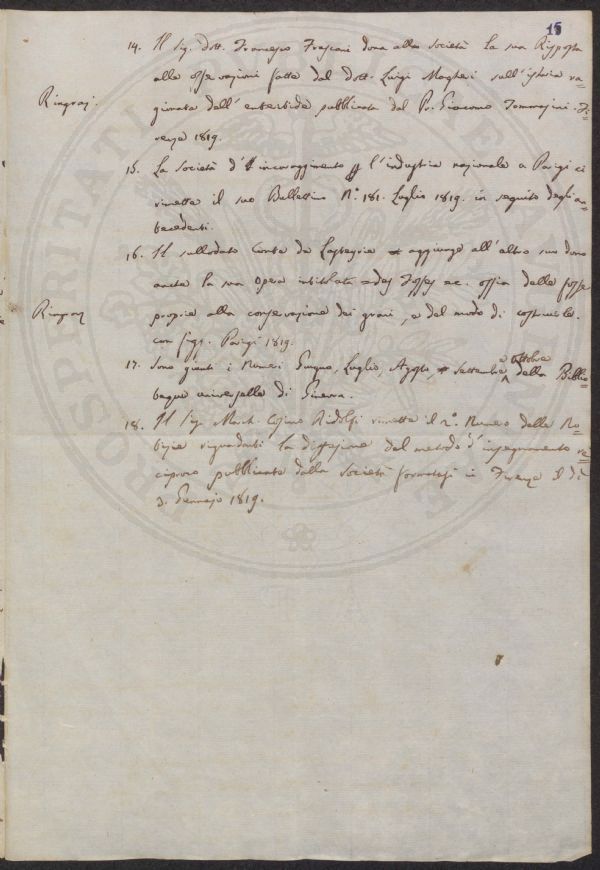 15
14. Il Sig. Dott. Francesco Frascani dona alla Società la sua Risposta
alle osservazioni fatte dal Dott. Luigi Magheri sull'istoria ra=
Ringraz.
gionata dell'enterite pubblicata dal Pr. Giacomo Tommasini. Fi=
renze 1819.
15. La Società d'incoraggimento l'industria nazionale a Parigi ci
rimette il suo Bullettino N.° 181. Luglio 1819. in seguito degli an=
tecedenti.
16. Il sullodato Conte de Lasteyrie aggiunge all'altro suo dono
anche la sua Opera intitolata des Fosses ec. ossia delle fosse
Ringraz
proprie alla conservazione dei grani, e del modo di costruirle.
con figg. Parigi 1819.
17. Sono giunti i Numeri Giugno, Luglio, Agosto, Settembre e Ottobre della Biblio=
teque universelle di Ginevra.
18. Il Sig. March. Cosimo Ridolfi rimette il 2.° Numero delle No=
tizie riguardanti la diffusione del metodo d'insegnamento re=
ciproco pubblicate dalla Società formatasi in Firenze il dì
3. Gennajo 1819.
PROSPERITATI PUBLICAE